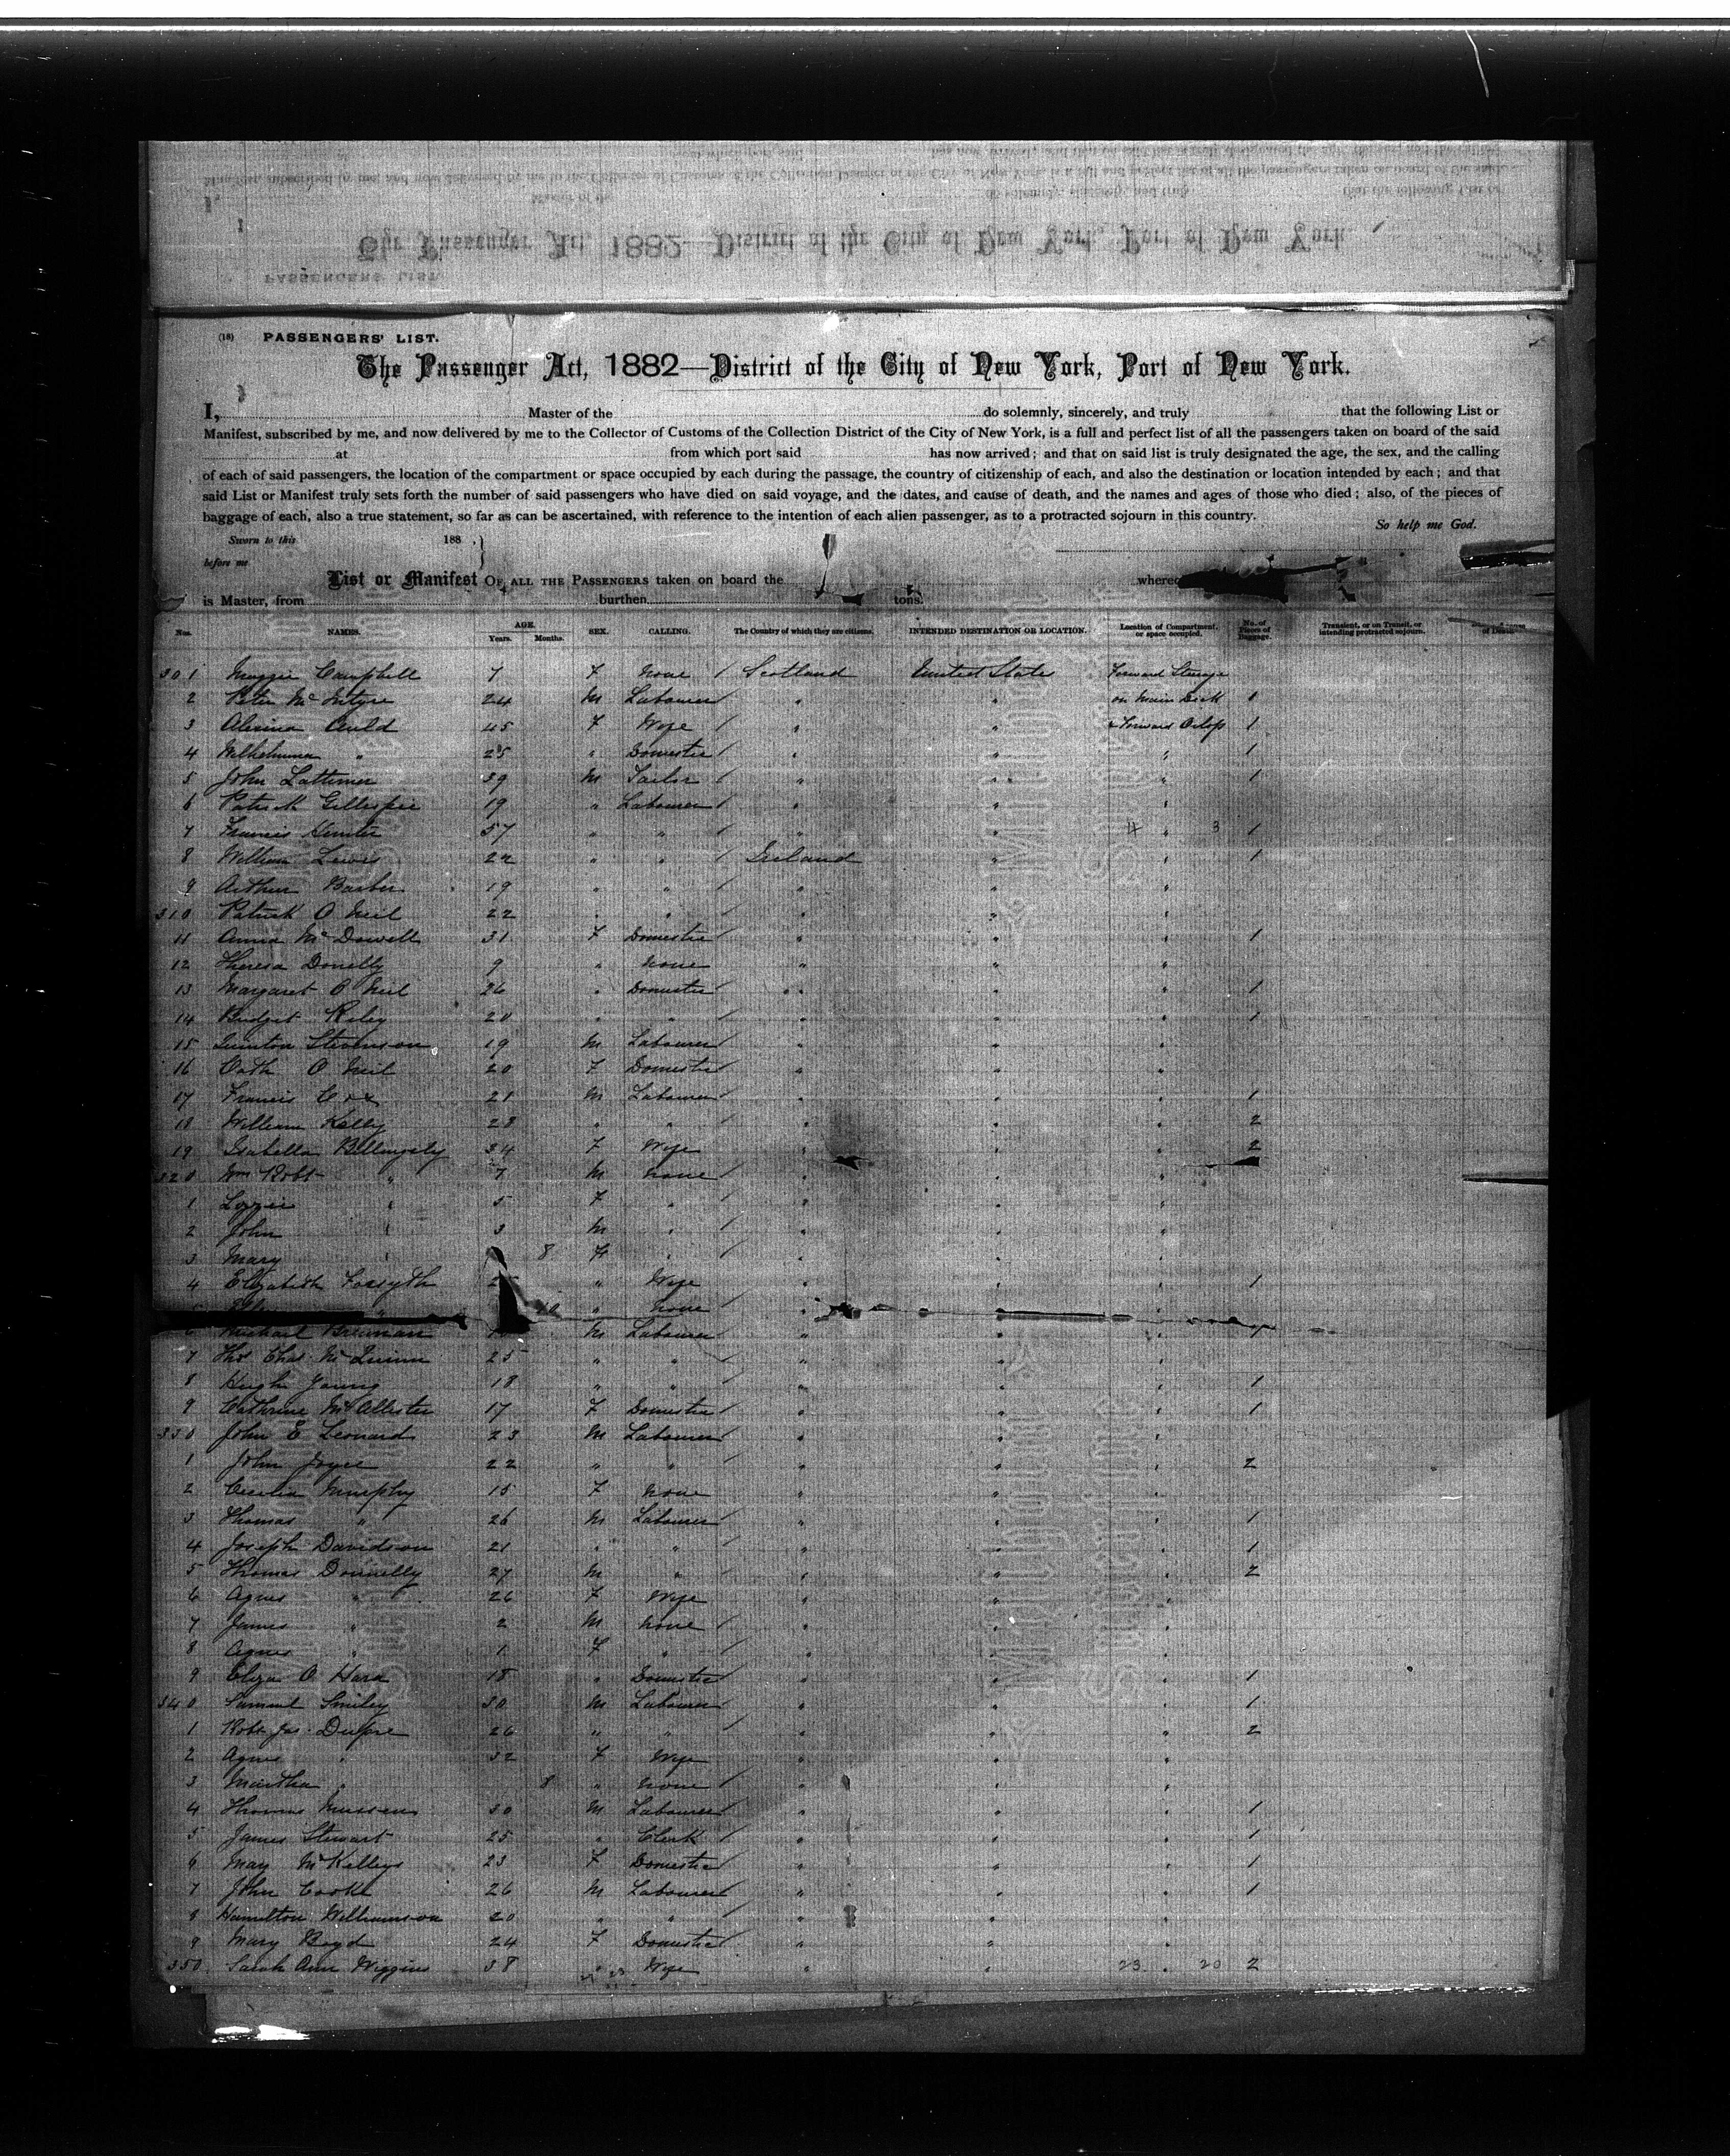 (18) PASSENGERS' LIST.
The Passenger Act, 1882—District of the City of New York, Port of New York.
I, Master of the do solemnly, sincerely, and truly that the following List or
Manifest, subscribed by me, and now delivered by me to the Collector of Customs of the Collection District of the City of New York, is a full and perfect list of all the passengers taken on board of the said
at from which port said has now arrived; and that on said list is truly designated the age, the sex, and the calling
of each of said passengers, the location of the compartment or space occupied by each during the passage, the country of citizenship of each, and also the destination or location intended by each; and that
said List or Manifest truly sets forth the number of said passengers who have died on said voyage, and the dates, and cause of death, and the names and ages of those who died; also, of the pieces of
baggage of each, also a true statement, so far as can be ascertained, with reference to the intention of each alien passenger, as to a protracted sojourn in this country.
So help me God.
Sworn to this 188 .
before me
List or Manifest OF ALL THE PASSENGERS taken on board the whereo
is Master, from burthen tons.
Nos. NAMES. AGE. Years. Months. SEX. CALLING. The Country of which they are citizens. INTENDED DESTINATION OR LOCATION. Location of Compartment, or space occupied. No. of Pieces of Baggage. Transient, or on Transit, or intending protracted sojourn. of Death
301 Maggie Campbell 7 F None / Scotland United States Forward Steerage
2 Peter McIntyre 24 M Labourer / " " on Main Deck 1
3 Auld 45 F Wife / " " & Forward Orlop 1
4 Wilhelmina " 25 " Domestic / " " " 1
5 John Lattimer 39 M Tailor / " " " 1
6 Patrick Gillespie 19 " Labourer / " " "
7 Francis Hunter 57 " " / " " 4 " 3 1
8 William Lewis 22 " " / Ireland " " 1
9 Arthur Barber 19 " " / " " "
310 Patrick O Neil 22 " " / " " "
11 Anna McDowell 31 F Domestic / " " " 1
12 Theresa Donelly 9 " None " " "
13 Margaret O Neil 26 " Domestic / " " " 1
14 Bridget Riley 20 " " / " " " 1
15 Quinton Stevenson 19 M Labourer / " " "
16 Cath O Neil 20 F Domestic / " " "
17 Francis Cox 21 M Labourer / " " " 1
18 William Kelly 28 " " / " " " 2
19 Isabella Billingsly 34 F Wife / " " " 2
320 Wm Robt " 7 M None / " " "
1 Lizzie " 5 F " / " " "
2 John " 3 M " / " " "
3 Mary " 8 F " / " " "
4 Elizabeth Forsyth " Wife " " " 1
10 " None / " " "
6 Michael Brennan M Labourer " " " 1
7 Thos Chas McQuinn 25 " " / " " "
8 Hugh Young 18 " " / " " " 1
9 Cathrine McAllister 17 F Domestic / " " " 1
330 John E Leonard 23 M Labourer / " " "
1 John Joyce 22 " " / " " " 2
2 Cecilia Murphy 15 F None " " "
3 Thomas " 26 M Labourer / " " " 1
4 Joseph Davidson 21 " " / " " " 1
5 Thomas Donnelly 27 M " / " " " 2
6 Agnes " 26 F Wife " " "
7 James " 2 M None / " " "
8 Agnes " 1 F " / " " "
9 Eliza O Hara 18 " Domestic / " " " 1
340 Samuel Smiley 30 M Labourer " " " 1
1 Robt Jas 26 " " / " " " 2
2 Agnes " 32 F Wife / " " "
3 Martha " 8 " None / " " "
4 Thomas Mussen 30 M Labourer / " " " 1
5 James Stewart 25 " Clerk / " " " 1
6 May 23 F Domestic / " " " 1
7 John Cooke 26 M Labourer / " " " 1
8 Hamilton Williamson 20 " " / " " "
9 Mary Boyd 24 F Domestic / " " "
350 Sarah Ann Wiggins 38 " Wife " " 23 " 20 2